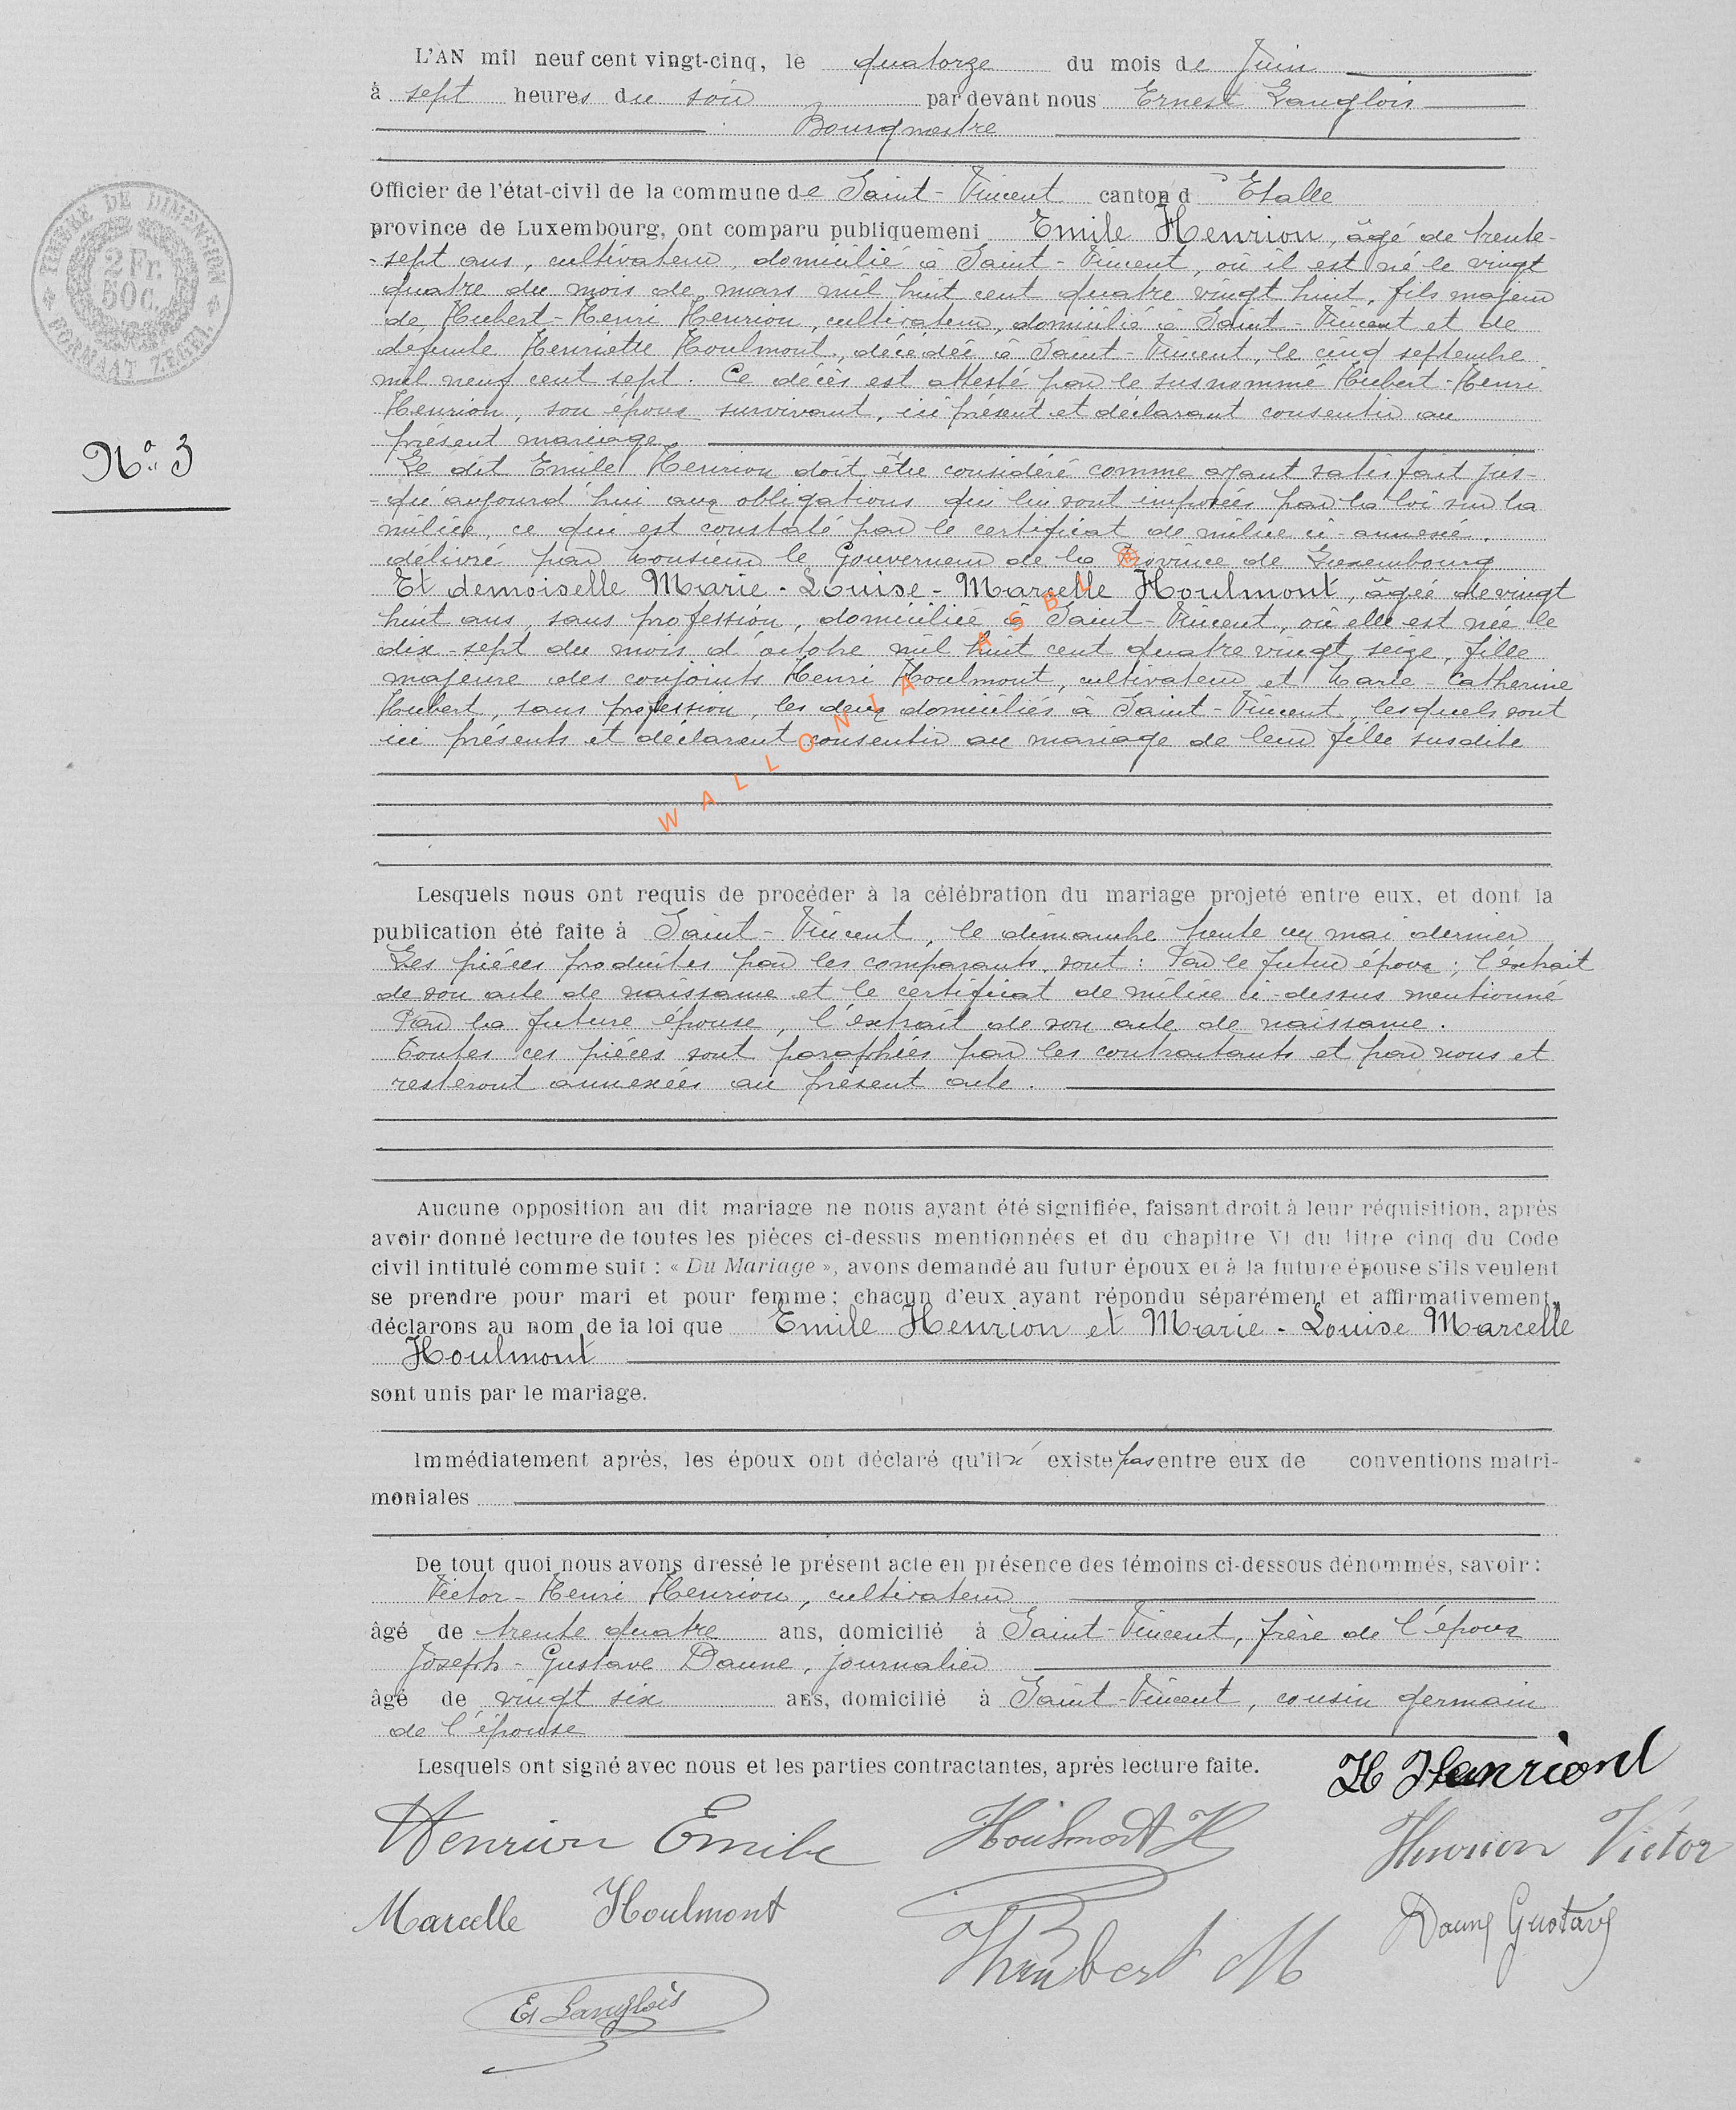 L'AN mil neuf cent vingt-cinq, le quatorze du mois de Juin
à sept heures du soir par devant nous Ernest Langlois
Bourgmestre
Officier de l'état-civil de la commune de Saint-Vincent canton d'Etalle
province de Luxembourg, ont comparu publiquemeni Emile Henrion, âgé de trente-
-sept ans, cultivateur, domicilié à Saint-Vincent, où il est né le vingt
quatre du mois de mars mil huit cent quatre vingt huit, fils majeur
de Hubert-Henri Henrion, cultivateur, domicilié à Saint-Vincent et de
defunte Henriette Houlmont, décédée à Saint-Vincent, le cinq septembre
mil neuf cent sept. Ce décès est attesté par le susnommé Hubert-Henri
Henrion, son époux survivant, ici présent et déclarant consentir au
présent mariage.
N° 3
Le dit Emile Henrion doit être considéré comme ayant satisfait jus-
-qu'aujourd'hui aux obligations qui lui sont imposées par la loi sur la
milice, ce qui est constaté par le certificat de milice ci-annexé,
délivré par Monsieur le Gouverneur de la Province de Luxembourg
Et demoiselle Marie-Louise-Marcelle Houlmont, âgée de vingt
huit ans, sans profession, domiciliée à Saint-Vincent, où elle est née le
dix-sept du mois d'octobre mil huit cent quatre vingt seize, fille
majeure des conjoints Henri Houlmont, cultivateur et Marie-Catherine
Hubert, sans profession, les deux domiciliés à Saint-Vincent, lesquels sont
ici présents et déclarent consentir au mariage de leur fille susdite
WALLONIA ASBL ®
Lesquels nous ont requis de procéder à la célébration du mariage projeté entre eux, et dont la
publication été faite à Saint-Vincent, le dimanche trente un mai dernier
Les pièces produites par les comparants, sont : Par le futur époux : l'extrait
de son acte de naissance et le certificat de milice ci-dessus mentionné
Par la future épouse, l'extrait de son acte de naissance.
Toutes ces pièces sont paraphées par les contractants et par nous et
resteront annexées au présent acte.
Aucune opposition au dit mariage ne nous ayant été signifiée, faisant droit à leur réquisition, après
avoir donné lecture de toutes les pièces ci-dessus mentionnées et du chapitre VI du titre cinq du Code
civil intitulé comme suit : « Du Mariage », avons demandé au futur époux et à la future épouse s'ils veulent
se prendre pour mari et pour femme; chacun d'eux ayant répondu séparément et affirmativement,
déclarons au nom de la loi que Emile Henrion et Marie-Louise Marcelle
Houlmont
sont unis par le mariage.
Immédiatement après, les époux ont déclaré qu'il n'existe pas entre eux de conventions matri-
moniales
De tout quoi nous avons dressé le présent acte en présence des témoins ci-dessous dénommés, savoir :
Victor-Henri Henrion, cultivateur
âgé de trente quatre ans, domicilié à Saint-Vincent, frère de l'époux
Joseph-Gustave Daune, journalier
âgé de vingt six ans, domicilié à Saint-Vincent, cousin germain
de l'épouse
Lesquels ont signé avec nous et les parties contractantes, après lecture faite.
H Henriond
Henrion Emile Houlmont H Henrion Victor
Marcelle Houlmont Daune Gustave
Hubert M
E Langlois
TIMBRE DE DIMENSION
2 Fr.
50 C.
FORMAAT ZEGEL